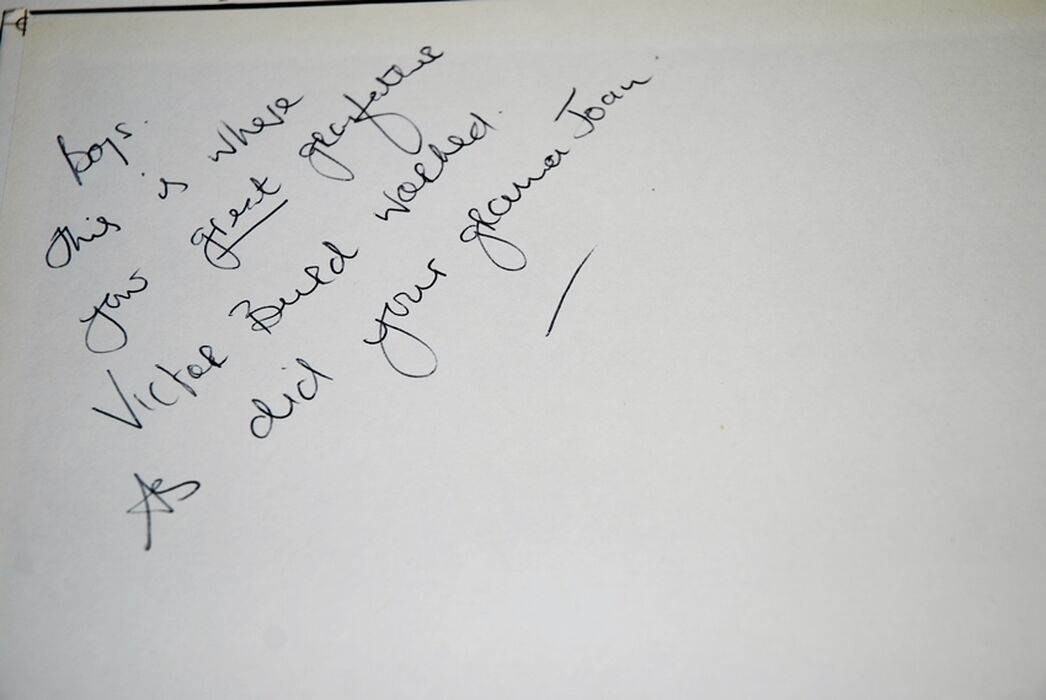 Boys.
this is where
your great granfather
Victor Burd worked.
As did your grama Joan